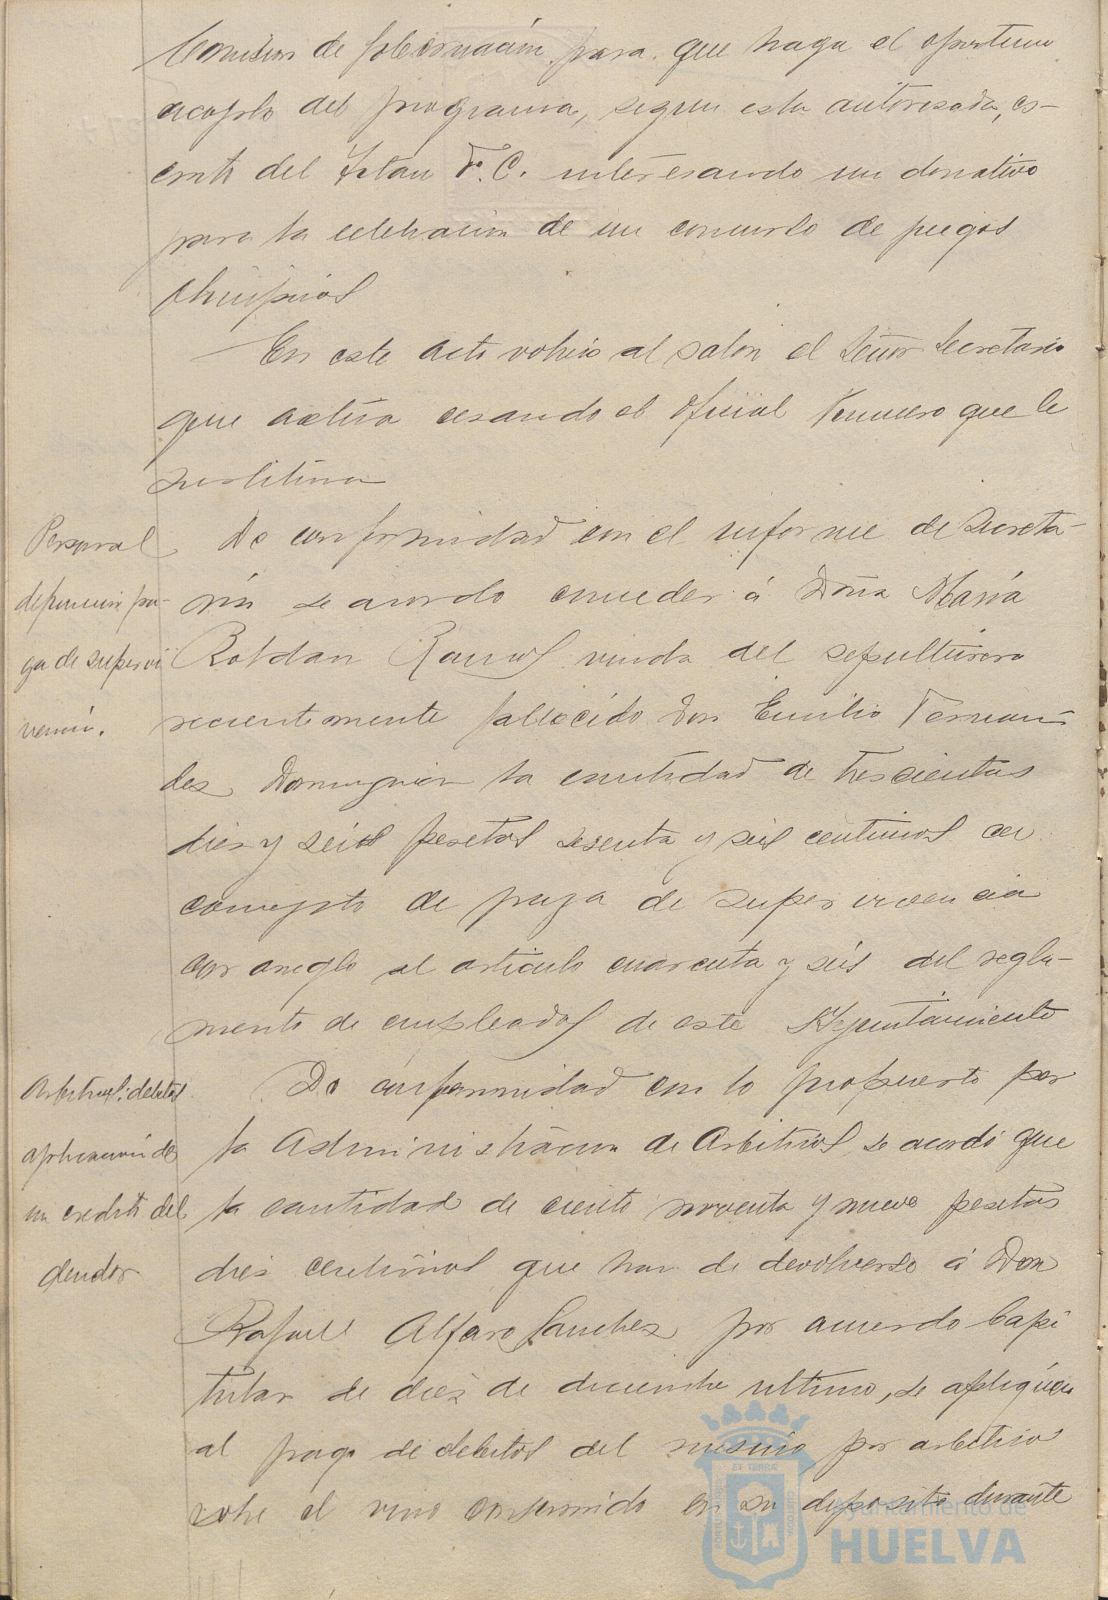 Comision de Gobernación para que haga el oportuno
acoplo del programa, segun esta autorisada, es-
crito del Titan F.C. interesando un donativo
para la celebración de un concurso de juegos
olimpicos
En este acto volvio al salon el Señor Secretario
que actua cesando el oficial que le
sustituia
Personal
defuncion pa-
ga de supervi
vencia.
De conformidad con el informe de Secreta-
ria se acordo conceder á Doña María
Roldan Ramos viuda del sepulturero
recientemente fallecido Don Emilio Fernan-
des Dominguez la cantidad de trescientas
dies y seis pesetas sesenta y seis centimos en
concepto de paga de supervivencia
con areglo al articulo cuarenta y seis del regla-
mento de empleados de este Ayuntamiento
Arbitrios: debitos
aplicación de
un credito del
deudor
De conformidad con lo propuesto por
la Administracion de Arbitrios se acordó que
la cantidad de ciento noventa y nueve pesetas
dies centimos que han de devolverse á Don
Rafael Alfaro Sanchez por acuerdo Capi
tular de dies de diciembre ultimo, se apliquen
al pago de debitos del mismo por arbitrios
sobre el vino consumido en su deposito durante
Ayuntamiento de
HUELVA